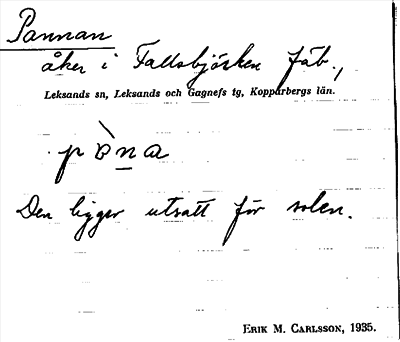 Pannan
åker i Fallsbjörken fäb.,
Leksands sn, Leksands och Gagnefs tg, Kopparbergs län.
pòna
Den ligger utsatt för solen.
ERIK M. CARLSSON, 1935.